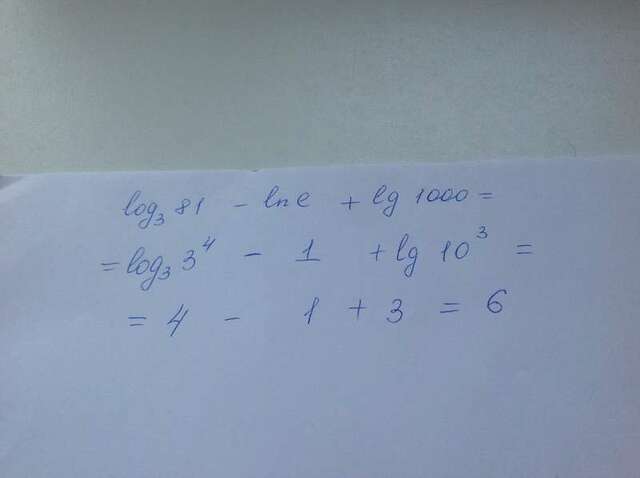 log₃ 81 - ln e + lg 1000 =
= log₃ 3⁴ - 1 + lg 10³ =
= 4 - 1 + 3 = 6